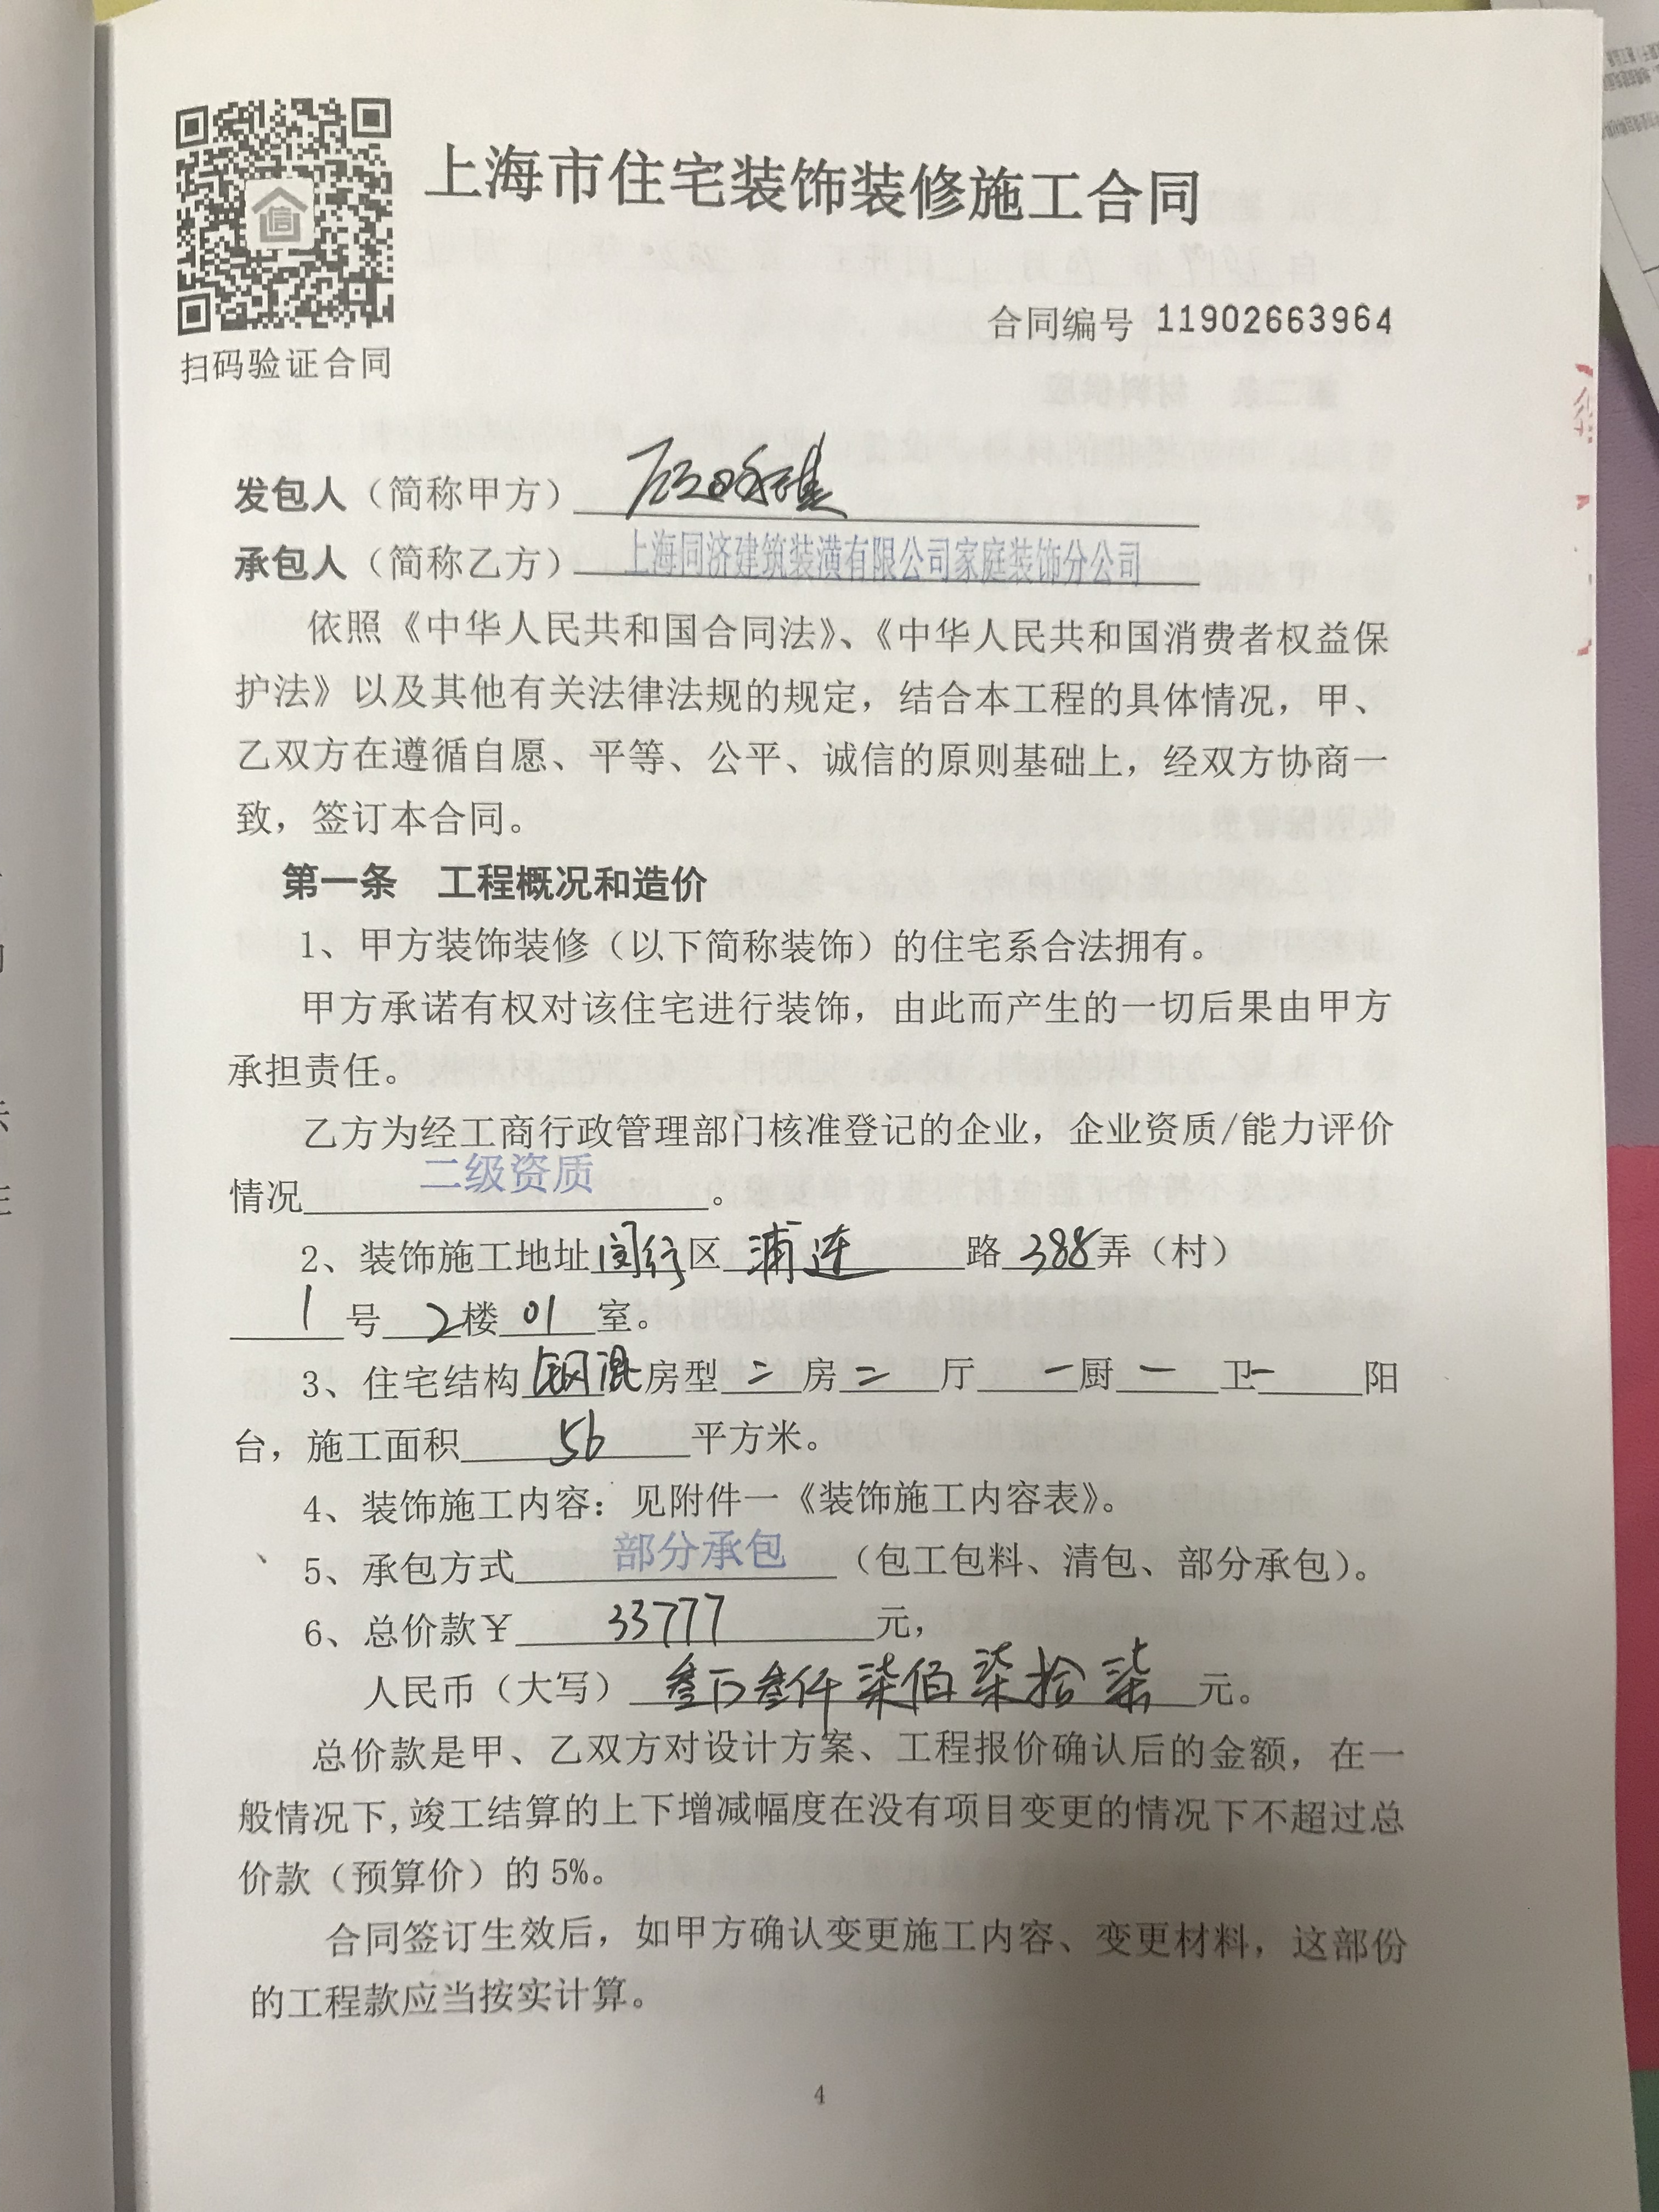 上海市住宅装饰装修施工合同
合同编号 11902663964
扫码验证合同
发包人（简称甲方）
承包人（简称乙方）上海同济建筑装潢有限公司家庭装饰分公司
依照《中华人民共和国合同法》、《中华人民共和国消费者权益保
护法》以及其他有关法律法规的规定，结合本工程的具体情况，甲、
乙双方在遵循自愿、平等、公平、诚信的原则基础上，经双方协商一
致，签订本合同。
第一条 工程概况和造价
1、甲方装饰装修（以下简称装饰）的住宅系合法拥有。
甲方承诺有权对该住宅进行装饰，由此而产生的一切后果由甲方
承担责任。
乙方为经工商行政管理部门核准登记的企业，企业资质/能力评价
情况二级资质。
2、装饰施工地址闵行区浦连路388弄（村）
1号2楼01室。
3、住宅结构钢混房型二房二厅一厨一卫一阳
台，施工面积56平方米。
4、装饰施工内容：见附件一《装饰施工内容表》。
5、承包方式部分承包（包工包料、清包、部分承包）。
6、总价款￥33777元，
人民币（大写）叁万叁仟柒佰柒拾柒元。
总价款是甲、乙双方对设计方案、工程报价确认后的金额，在一
般情况下,竣工结算的上下增减幅度在没有项目变更的情况下不超过总
价款（预算价）的5%。
合同签订生效后，如甲方确认变更施工内容、变更材料，这部份
的工程款应当按实计算。
4